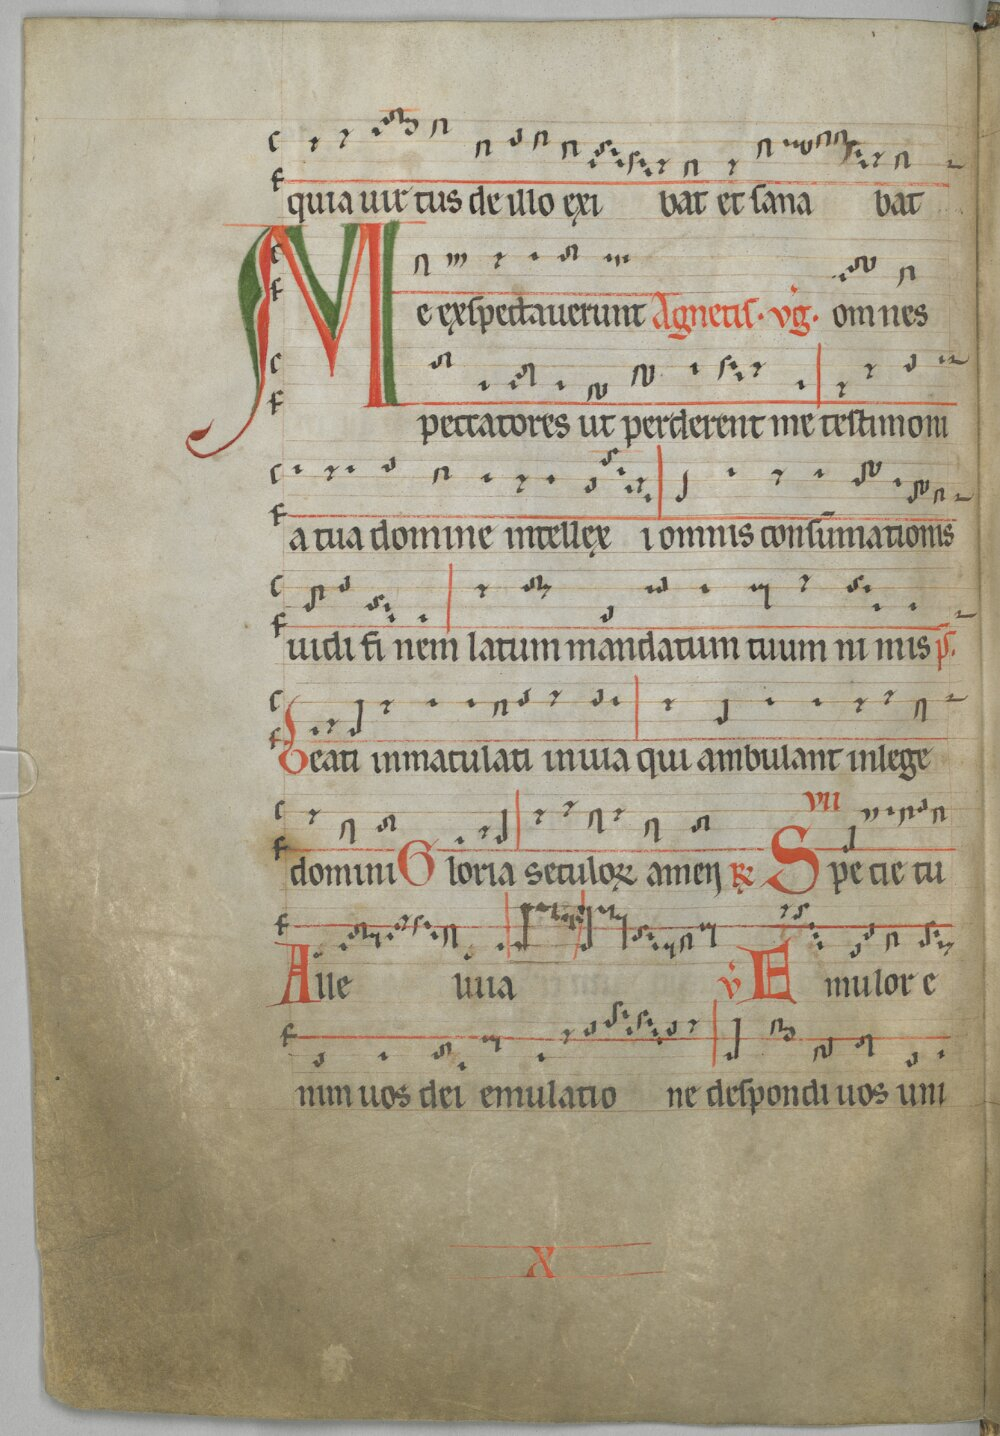 quia uir tus de illo exi bat et sana bat
Me exspectauerunt Agnetis. vg. omnes
peccatores ut perderent me testimoni
a tua domine intellex i omnis consūmationis
uidi fi nem latum mandatum tuum ni mis ps.
Beati inmaculati inuia qui ambulant inlege
VII
domini Gloria seculoꝝ amen ℟ Spe cie tu
Alle luia v̇ Emulor e
nim uos dei emulatio ne despondi uos uni
X